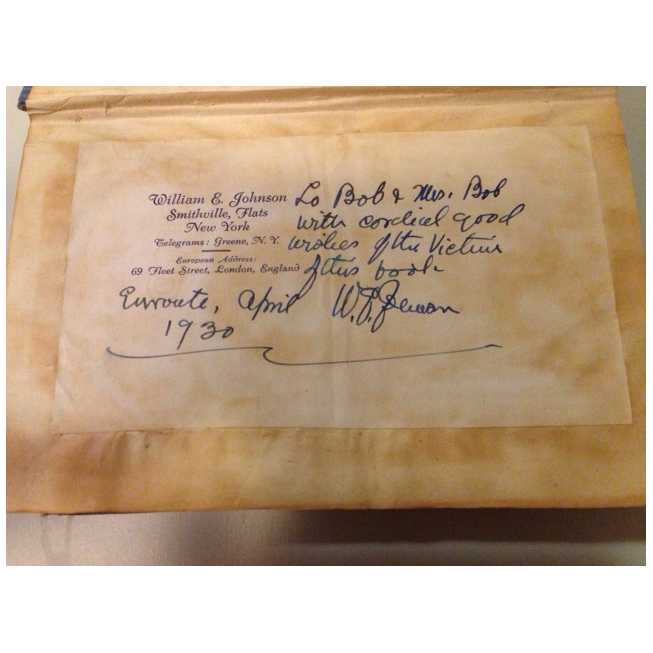 William E. Johnson
Smithville, Flats
New York
Telegrams: Greene, N. Y.
European Address:
69 Fleet Street, London, England
To Bob & Mrs. Bob
with cordial good
wishes of the Victim
of this book
W. E. Johnson
Enroute, April
1930